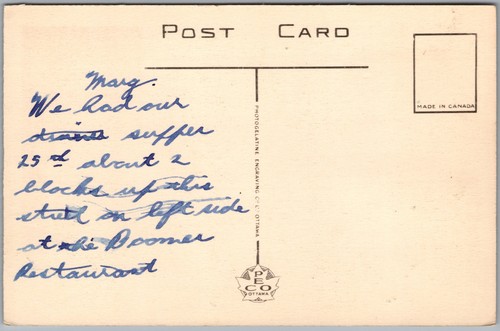 POST CARD
MADE IN CANADA
Marg.
We had our
supper
25rd about 2
blocks up this
street on left side
at the Boomer
Restaurant
PHOTOGELATINE ENGRAVING OTTAWA
PECO
OTTAWA